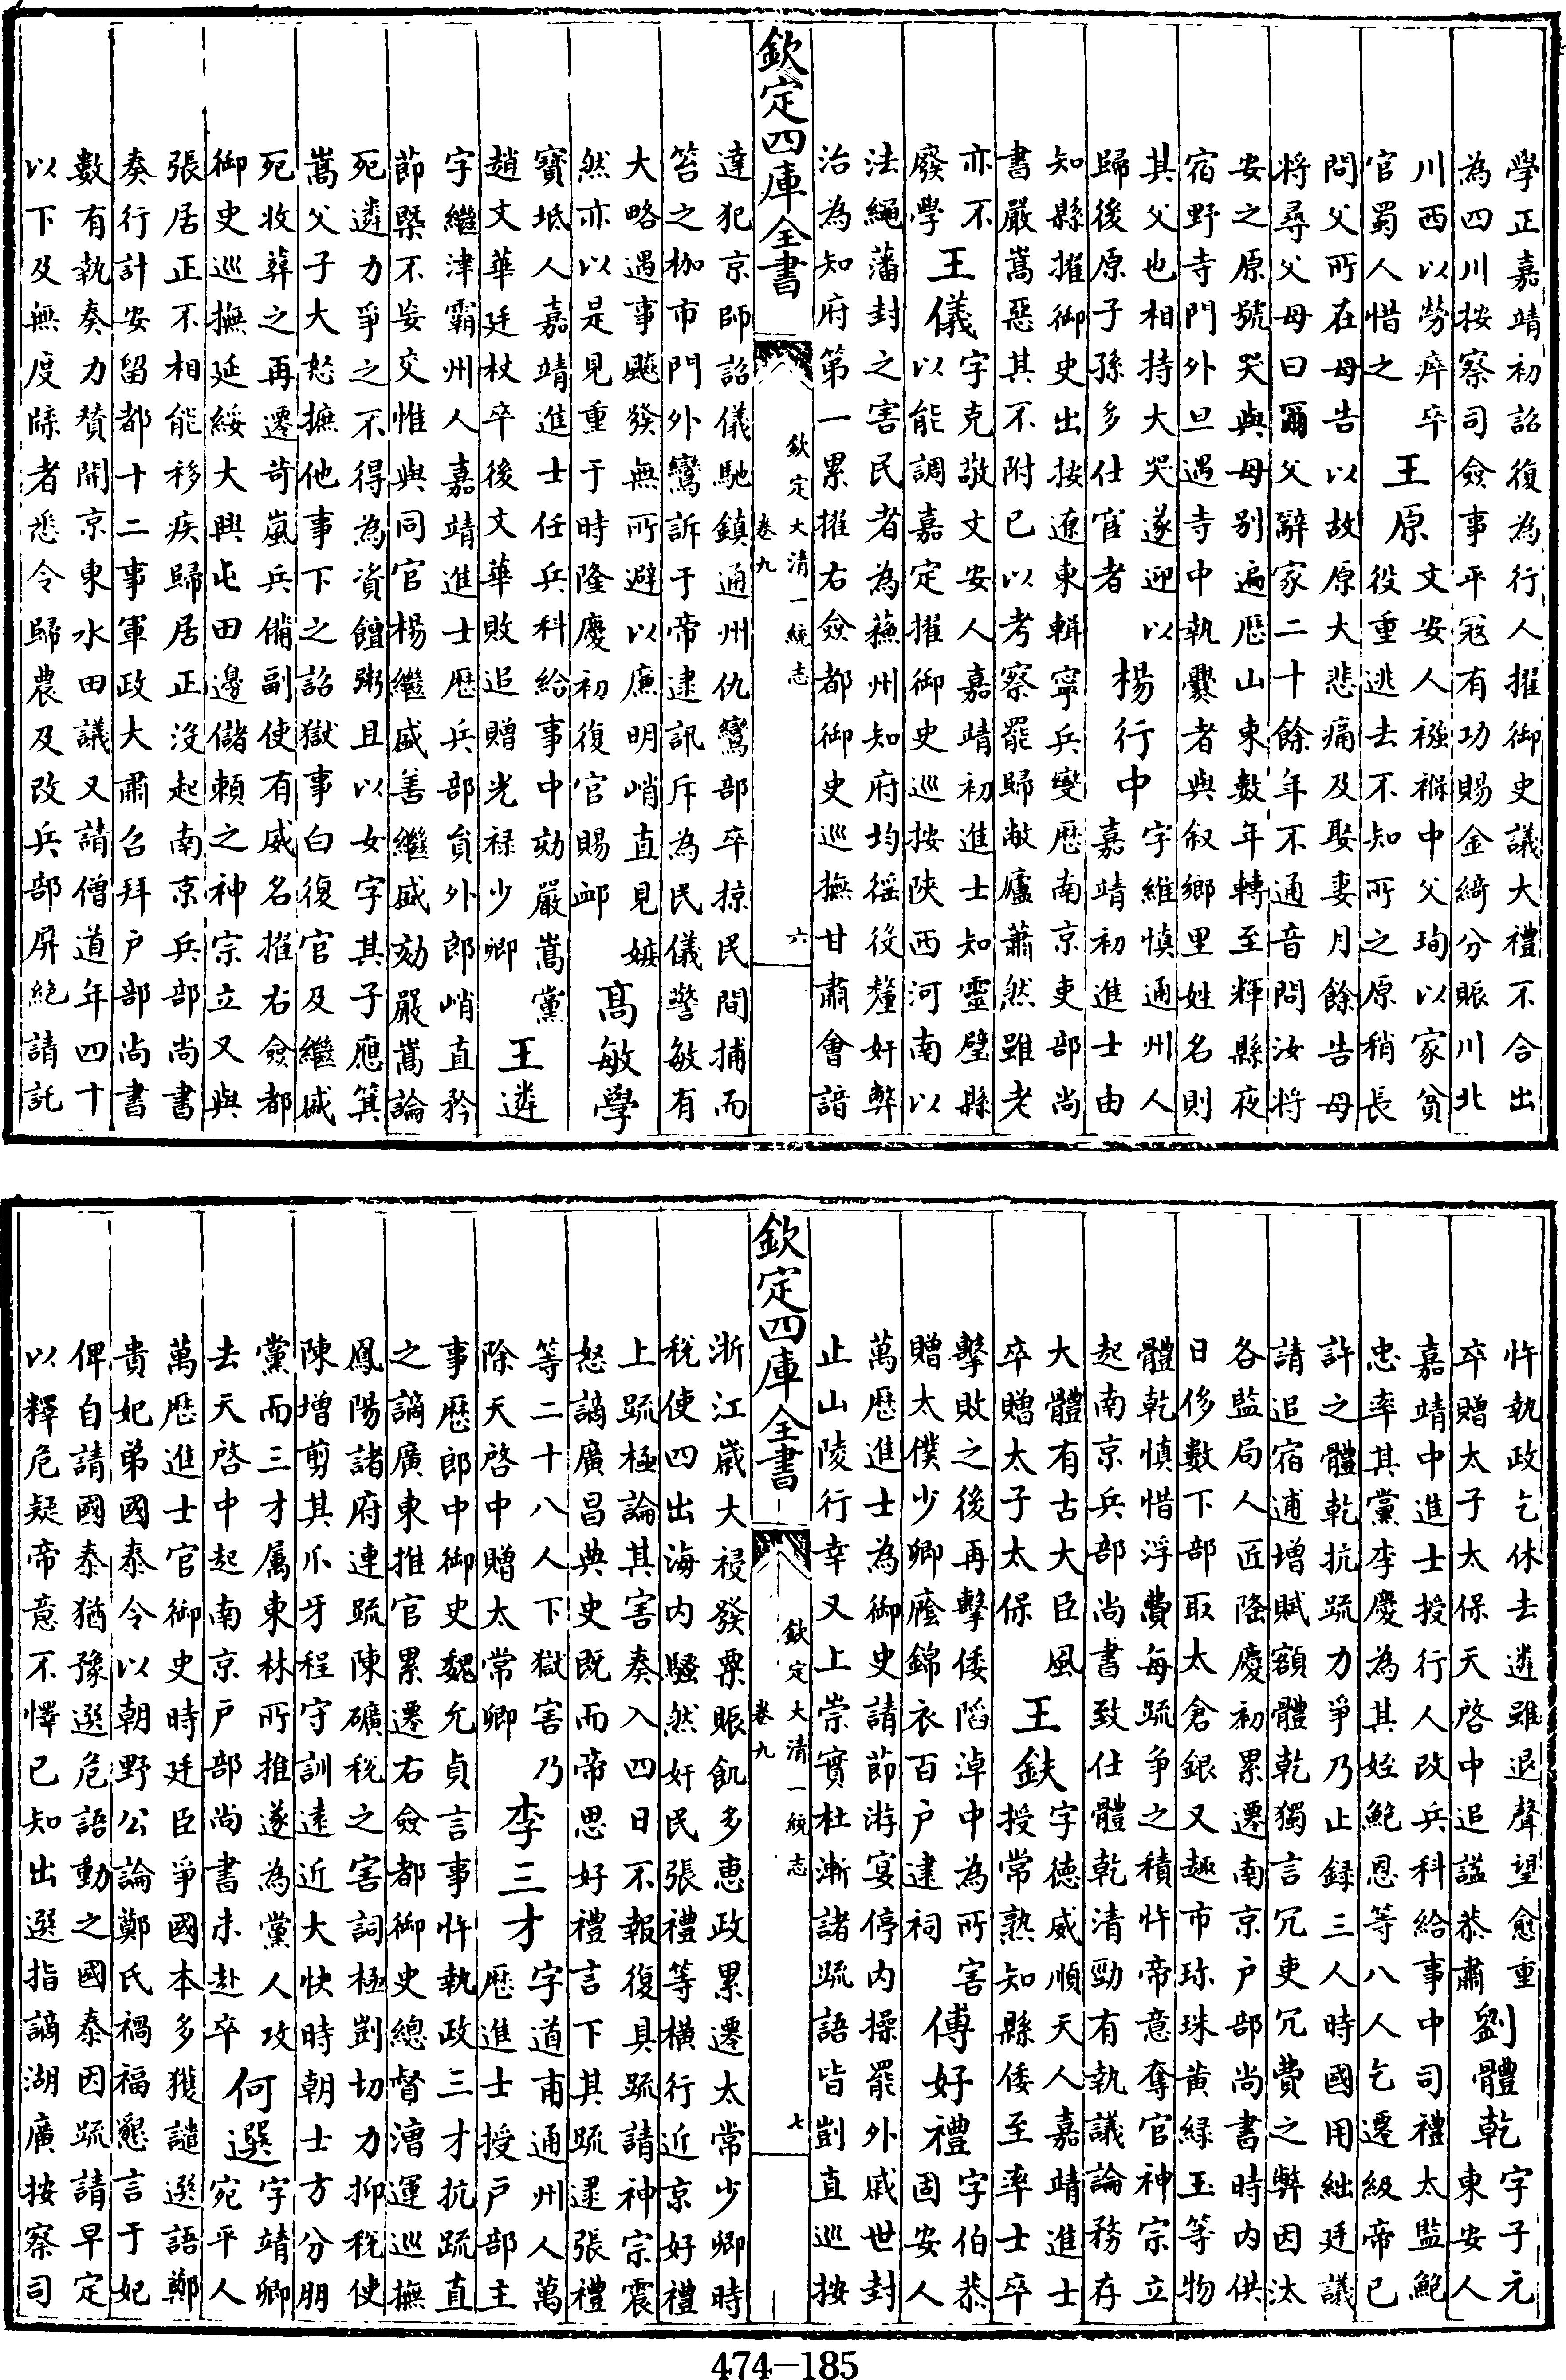 學正嘉靖初詔復為行人擢御史議大禮不合出
為四川按察司僉事平寇有功賜金綺分賑川北
川西以勞瘁卒
官蜀人惜之
王原
文安人襁褓中父珣以家貧
役重逃去不知所之原稍長
問父所在母告以故原大悲痛及娶妻月餘告母
將尋父母曰爾父辭家二十餘年不通音問汝將
安之原號哭與母别遍歷山東數年轉至輝縣夜
宿野寺門外旦遇寺中執爨者與叙鄉里姓名則
其父也相持大哭遂迎以
歸後原子孫多仕宦者
楊行中
字維慎通州人
嘉靖初進士由
知縣擢御史出按遼東輯寧兵變歷南京吏部尚
書嚴嵩惡其不附已以考察罷歸敝廬蕭然雖老
亦不
廢學
王儀
字克敬文安人嘉靖初進士知靈璧縣
以能調嘉定擢御史巡按陝西河南以
法繩藩封之害民者為蘇州知府均徭役釐奸弊
治為知府第一累擢右僉都御史巡撫甘肅會諳
欽定四庫全書
欽定大清一統志
卷九
六
達犯京師詔儀馳鎮通州仇鸞部卒掠民間捕而
笞之枷市門外鸞訴于帝逮訊斥為民儀警敏有
大略遇事飈發無所避以廉明峭直見嫉
然亦以是見重于時隆慶初復官賜䘏
高敏學
寶坻人嘉靖進士任兵科給事中劾嚴嵩黨
趙文華廷杖卒後文華敗追贈光禄少卿
王遴
字繼津霸州人嘉靖進士歷兵部員外郎峭直矜
節槩不妄交惟與同官楊繼盛善繼盛劾嚴嵩論
死遴力爭之不得為資饘粥且以女字其子應箕
嵩父子大怒摭他事下之詔獄事白復官及繼盛
死收葬之再遷岢嵐兵備副使有威名擢右僉都
御史巡撫延綏大興屯田邊儲賴之神宗立又與
張居正不相能移疾歸居正沒起南京兵部尚書
奏行計安留都十二事軍政大肅召拜户部尚書
數有執奏力贊開京東水田議又請僧道年四十
以下及無度牒者悉令歸農及改兵部屏絶請託
忤執政乞休去遴雖退聲望愈重
卒贈太子太保天啓中追謚恭肅
劉體乾
字子元
東安人
嘉靖中進士授行人改兵科給事中司禮太監鮑
忠率其黨李慶為其姪鮑恩等八人乞遷級帝已
許之體乾抗疏力爭乃止録三人時國用絀廷議
請追宿逋增賦額體乾獨言冗吏冗費之弊因汰
各監局人匠隆慶初累遷南京户部尚書時内供
日侈數下部取太倉銀又趣市珍珠黄緑玉等物
體乾慎惜浮費每疏爭之積忤帝意奪官神宗立
起南京兵部尚書致仕體乾清勁有執議論務存
大體有古大臣風
卒贈太子太保
王鈇
字德威順天人嘉靖進士
授常熟知縣倭至率士卒
擊敗之後再擊倭蹈淖中為所害
贈太僕少卿廕錦衣百户建祠
傅好禮
字伯恭
固安人
萬歷進士為御史請節游宴停内操罷外戚世封
止山陵行幸又上崇實杜漸諸疏語皆剴直巡按
欽定四庫全書
欽定大清一統志
卷九
七
浙江歲大祲發粟賑飢多惠政累遷太常少卿時
稅使四出海内騷然奸民張禮等横行近京好禮
上疏極論其害奏入四日不報復具疏請神宗震
怒謫廣昌典史既而帝思好禮言下其疏逮張禮
等二十八人下獄害乃
除天啓中贈太常卿
李三才
字道甫通州人萬
歷進士授户部主
事歷郎中御史魏允貞言事忤執政三才抗疏直
之謫廣東推官累遷右僉都御史總督漕運巡撫
鳳陽諸府連疏陳礦稅之害詞極剴切力抑稅使
陳增剪其爪牙程守訓遠近大快時朝士方分朋
黨而三才属東林所推遂為黨人攻
去天啓中起南京户部尚書未赴卒
何選
字靖卿
宛平人
萬歷進士官御史時廷臣爭國本多獲譴選語鄭
貴妃弟國泰令以朝野公論鄭氏禍福懇言于妃
俾自請國泰猶豫選危語動之國泰因疏請早定
以釋危疑帝意不懌已知出選指謫湖廣按察司
474—185